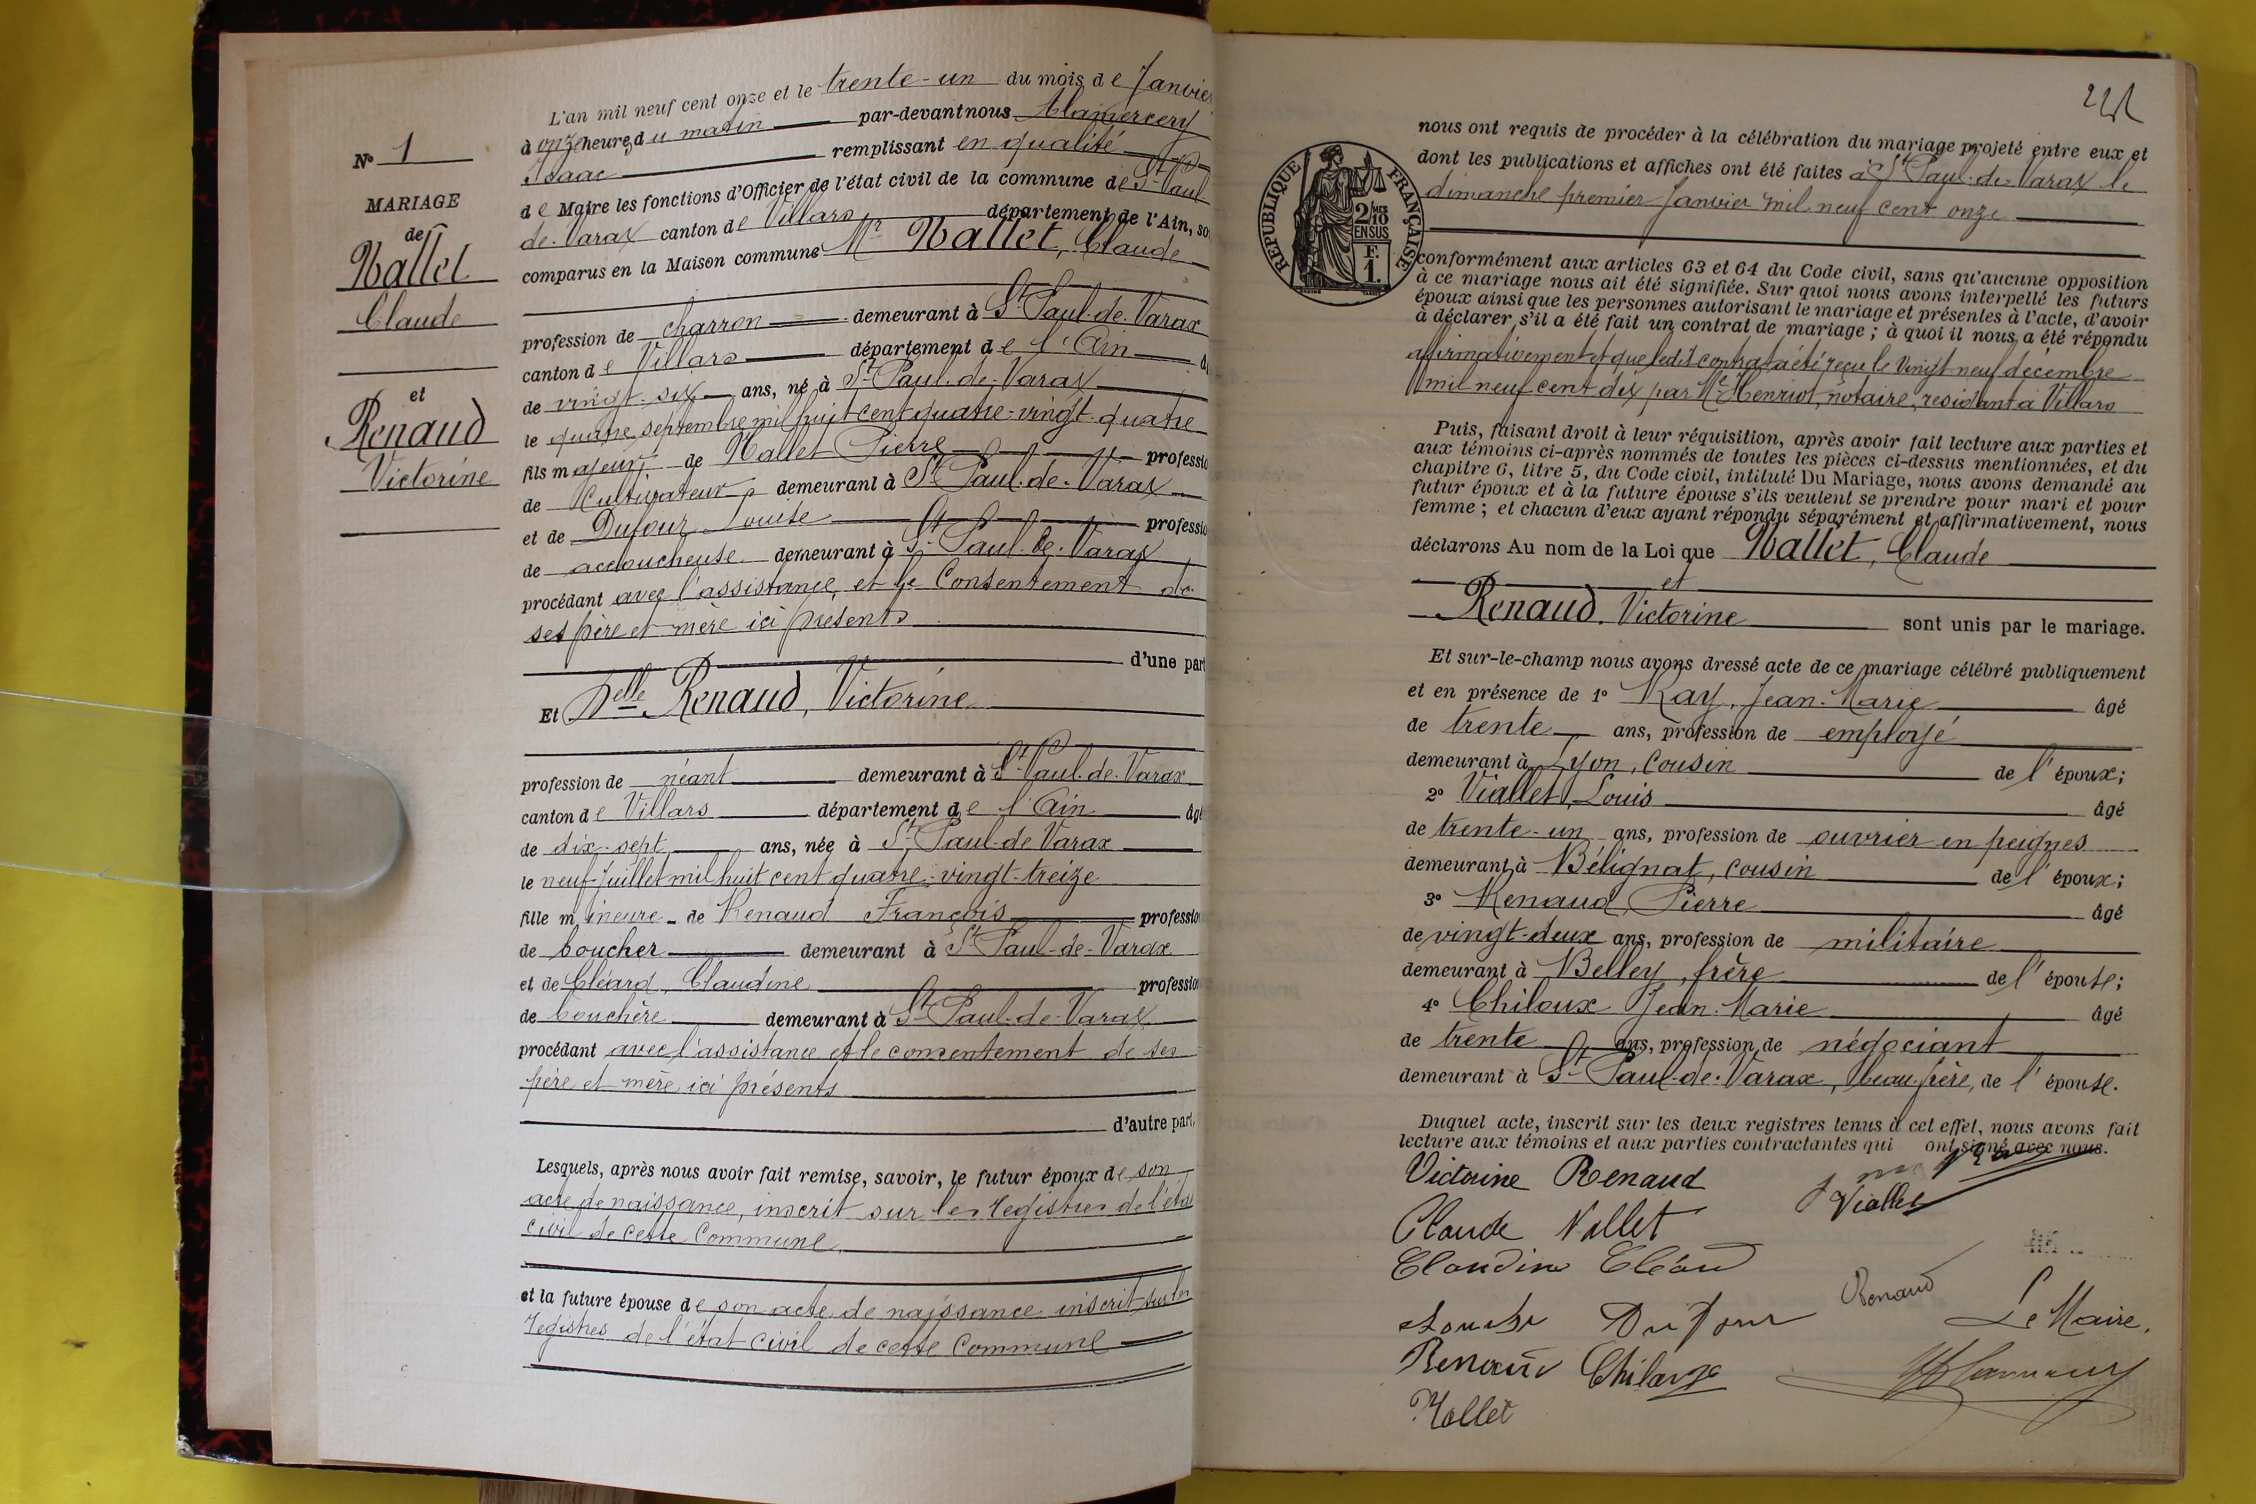 N° 1
MARIAGE
de
Nallet
Claude
et
Renaud
Victorine
L'an mil neuf cent onze et le trente-un du mois de Janvier
à onze heures du matin par-devant nous
Isaac remplissant en qualité
de Maire les fonctions d'Officier de l'état civil de la commune de St Paul
de Varax canton de Villars département de l'Ain, so
comparus en la Maison commune Mr Nallet, Claude
profession de charron demeurant à St Paul-de-Varax
canton de Villars département de l'Ain â
de vingt-six ans, né à St Paul-de-Varax
le quatre septembre mil huit cent quatre-vingt-quatre
fils majeur de Nallet Pierre professio
de Cultivateur demeurant à St Paul-de-Varax
et de Dufour Louise professio
de accoucheuse demeurant à St Paul-de-Varax
procédant avec l'assistance et le Consentement de
ses père et mère ici présents
d'une part
Et Delle Renaud, Victorine
profession de néant demeurant à St Paul-de-Varax
canton de Villars département de l'Ain âgé
de dix-sept ans, née à St Paul-de Varax
le neuf Juillet mil huit cent quatre-vingt-treize
fille mineure de Renaud François profession
de boucher demeurant à St Paul-de-Varax
et de Cléard, Claudine profession
de bouchère demeurant à St Paul-de-Varax
procédant avec l'assistance et le consentement de ses
père et mère ici présents
d'autre part.
Lesquels, après nous avoir fait remise, savoir, le futur époux de son
acte de naissance, inscrit sur les registres de l'état
civil de cette Commune
et la future épouse de son acte de naissance inscrit sur les
registres de l'état civil de cette Commune
RÉPUBLIQUE FRANÇAISE
2/10
EN SUS
F.
1.
nous ont requis de procéder à la célébration du mariage projeté entre eux et
dont les publications et affiches ont été faites à St Paul-de-Varax le
dimanche premier Janvier mil neuf cent onze
conformément aux articles 63 et 64 du Code civil, sans qu'aucune opposition
à ce mariage nous ait été signifiée. Sur quoi nous avons interpellé les futurs
époux ainsi que les personnes autorisant le mariage et présentes à l'acte, d'avoir
à déclarer s'il a été fait un contrat de mariage ; à quoi il nous a été répondu
affirmativement et que ledit contrat a été reçu le vingt neuf décembre
mil neuf cent dix par Me Henriot, notaire, résidant à Villars
Puis, faisant droit à leur réquisition, après avoir fait lecture aux parties et
aux témoins ci-après nommés de toutes les pièces ci-dessus mentionnées, et du
chapitre 6, titre 5, du Code civil, intitulé Du Mariage, nous avons demandé au
futur époux et à la future épouse s'ils veulent se prendre pour mari et pour
femme ; et chacun d'eux ayant répondu séparément et affirmativement, nous
déclarons Au nom de la Loi que Nallet, Claude
et
Renaud, Victorine sont unis par le mariage.
Et sur-le-champ nous avons dressé acte de ce mariage célébré publiquement
et en présence de 1° Ray, Jean-Marie âgé
de trente ans, profession de employé
demeurant à Lyon, cousin de l'époux;
2° Viallet, Louis âgé
de trente-un ans, profession de ouvrier en peignes
demeurant à Bélignat, cousin de l'époux;
3° Renaud, Pierre âgé
de vingt-deux ans, profession de militaire
demeurant à Belley, frère de l'épouse;
4° Chiloux Jean-Marie âgé
de trente ans, profession de négociant
demeurant à St Paul-de-Varax, beau-frère, de l'épouse.
Duquel acte, inscrit sur les deux registres tenus à cet effet, nous avons fait
lecture aux témoins et aux parties contractantes qui ont signé avec nous.
Victorine Renaud
Viallet
Claude Nallet
Claudine Cléard
Renaud
Dufour
Le Maire,
Renaud
Nallet